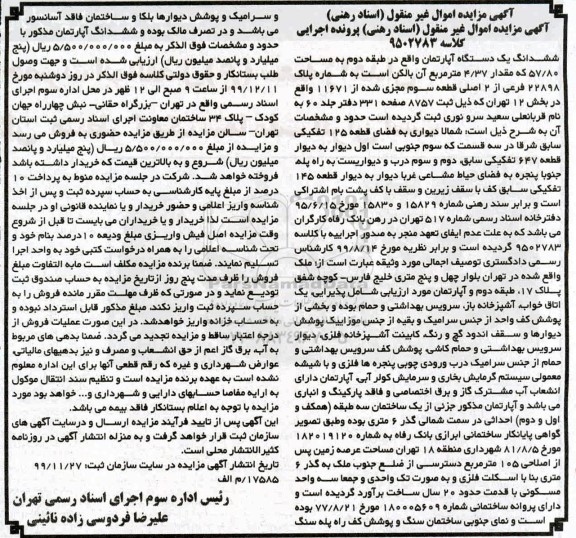 آگهی مزایده اموال غیر منقول (اسناد رهنی)
آگهی مزایده اموال غیر منقول (اسناد رهنی) پرونده اجرایی
کلاسه ۹۵۰۲۷۸۳
ششدانگ یک دستگاه آپارتمان واقع در طبقه دوم به مساحت
۵۷/۸۰ که مقدار ۴/۳۷ مترمربع آن بالکن است به شماره پلاک
۲۲۸۹۸ فرعی از ۲ اصلی قطعه سوم مجزی شده از ۱۱۶۷۱ واقع
در بخش ۱۲ تهران که ذیل ثبت ۸۷۵۷ صفحه ۳۳۱ دفتر جلد ۶۰ به
نام قربانعلی سعید سرو نوری ثبت گردیده است حدود و مشخصات
آن به شرح ذیل است: شمالا دیواری به فضای قطعه ۱۲۵ تفکیکی
سابق شرقا در سه قسمت که سوم جنوبی است اول دیوار به دیوار
قطعه ۶۴۷ تفکیکی سابق، دوم و سوم درب و دیواریست به راه پله
جنوبا پنجره به فضای حیاط مشاعی غربا دیوار به دیوار قطعه ۱۴۵
تفکیکی سابق کف با سقف زیرین و سقف با کف پشت بام اشتراکی
است و برابر سند رهنی شماره ۱۵۸۲۹ و ۱۵۸۳۰ مورخ ۹۵/۶/۱۵
دفترخانه اسناد رسمی شماره ۵۱۷ تهران در رهن بانک رفاه کارگران
می باشد که به علت عدم ایفای تعهد منجر به صدور اجراییه با کلاسه
۹۵۰۲۷۸۳ گردیده است و برابر نظریه مورخ ۹۹/۸/۱۴ کارشناس
رسمی دادگستری توصیف اجمالی مورد وثیقه عبارت است از: ملک
واقع شده در تهران بلوار چهل و پنج متری خلیج فارس- کوچه شفق
پلاک ۱۷، طبقه دوم و آپارتمان مورد ارزیابی شامل پذیرایی، یک
اتاق خواب، آشپزخانه باز، سرویس بهداشتی و حمام بوده و بخشی از
پوشش کف واحد از جنس سرامیک و بقیه از جنس موزاییک پوشش
دیوارها و سقف اندود گچ و رنگ، کابینت آشپزخانه فلزی، دیوار
سرویس بهداشتی و حمام کاشی، پوشش کف سرویس بهداشتی و
حمام از جنس سرامیک درب ورودی چوبی پنجره ها فلزی و با شیشه
معمولی سیستم گرمایش بخاری و سرمایش کولر آبی، آپارتمان دارای
انشعاب آب مشترک گاز و برق اختصاصی و فاقد پارکینگ و انباری
می باشد و آپارتمان مذکور جزئی از یک ساختمان سه طبقه (همکف و
اول و دوم) احداثی در سمت شمالی گذر ۶ متری بوده وطبق تصویر
گواهی پایانکار ساختمانی ابرازی بانک رفاه به شماره ۱۸۲۰۱۹۱۲۰
مورخ ۸۱/۸/۵ شهرداری منطقه ۱۸ تهران مساحت عرصه زمین پس
از اصلاحی ۱۰۵ مترمربع دسترسی از ضلع جنوب ملک به گذر ۶
متری بنا با اسکلت فلزی و به صورت تک واحدی و جمعا سه واحد
مسکونی با قدمت حدود ۲۰ سال ساخت برآورد گردیده است و
دارای پروانه ساختمانی شماره ۱۸۰۰۰۵۶۰۹ مورخ ۷۷/۸/۲۱ بوده
است و نمای جنوبی ساختمان سنگ و پوشش کف راه پله سنگ
و سرامیک و پوشش دیوارها بلکا و ساختمان فاقد آسانسور
می باشد و در تصرف مالک بوده و ششدانگ آپارتمان مذکور با
حدود و مشخصات فوق الذکر به مبلغ ۵/۵۰۰/۰۰۰/۰۰۰ ریال (پنج
میلیارد و پانصد میلیون ریال) ارزیابی شده است و جهت وصول
طلب بستانکار و حقوق دولتی کلاسه فوق الذکر در روز دوشنبه مورخ
۹۹/۱۲/۱۱ از ساعت ۹ صبح الی ۱۲ ظهر در محل اداره سوم اجرای
اسناد رسمی واقع در تهران –بزرگراه حقانی- نبش چهارراه جهان
کودک – پلاک ۳۴ ساختمان معاونت اجرای اسناد رسمی ثبت استان
تهران- سالن مزایده از طریق مزایده حضوری به فروش می رسد
و مزایده از مبلغ ۵/۵۰۰/۰۰۰/۰۰۰ ریال (پنج میلیارد و پانصد
میلیون ریال) شروع و به بالاترین قیمت که خریدار داشته باشد
فروخته خواهد شد. شرکت در جلسه مزایده منوط به پرداخت ۱۰
درصد از مبلغ پایه کارشناسی به حساب سپرده ثبت و پس از اخذ
شناسه واریز اعلامی و حضور خریدار و یا نماینده قانونی او در جلسه
مزایده است لذا خریدار و یا خریداران می بایست تا قبل از شروع
وقت مزایده اصل فیش واریزی مبلغ ودیعه ۱۰درصد بنام خود و
تحت شناسه اعلامی را به همراه درخواست کتبی خود به واحد اجرا
تسلیم نمایند. ضمنا برنده مزایده مکلف است مابه التفاوت مبلغ
فروش را ظرف مدت پنج روز ازتاریخ مزایده به حساب صندوق ثبت
تودیع نماید و در صورتی که ظرف مهلت مقرر مانده فروش را به
حساب سپرده ثبت واریز نکند، مبلغ مذکور قابل استرداد نبوده و
به حساب خزانه واریز خواهدشد. در این صورت عملیات فروش از
درجه اعتبار ساقط و مزایده تجدید می گردد. ضمنا بدهی های مربوط
به آب، برق گاز اعم از حق انشعاب و مصرف و نیز بدهیهای مالیاتی،
عوارض شهرداری و غیره که رقم قطعی آنها برای این اداره معلوم
نشده است به عهده برنده مزایده است و تنظیم سند انتقال موکول
به ارایه مفاصا حسابهای دارایی و شهرداری و... خواهد بود مورد
مزایده با توجه به اعلام بستانکار فاقد بیمه می باشد.
این آگهی پس از تایید فرآیند مزایده ارسال و درسایت آگهی های
سازمان ثبت قرار خواهد گرفت و به منزله انتشار آگهی در روزنامه
کثیرالانتشار محلی است.
تاریخ انتشار آگهی مزایده در سایت سازمان ثبت: ۹۹/۱۱/۲۷
۱۷۵۸۵/م الف
رئیس اداره سوم اجرای اسناد رسمی تهران
علیرضا فردوسی زاده نائینی